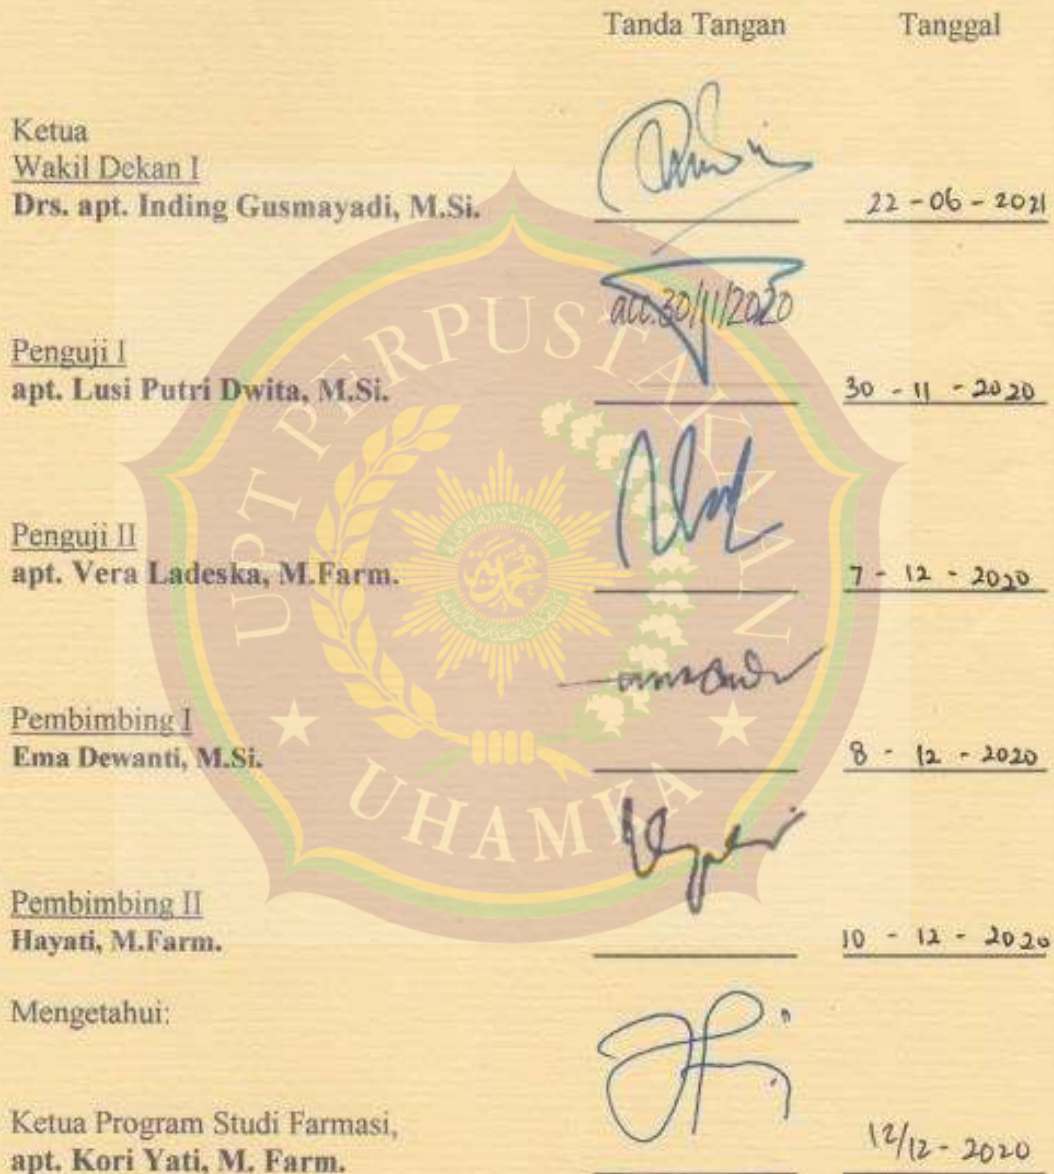 Tanda Tangan Tanggal
Ketua
Wakil Dekan I
Drs. apt. Inding Gusmayadi, M.Si. 22 - 06 - 2021
acc.30/11/2020
Penguji I
apt. Lusi Putri Dwita, M.Si. 30 - 11 - 2020
Penguji II
apt. Vera Ladeska, M.Farm. 7 - 12 - 2020
Pembimbing I
Ema Dewanti, M.Si. 8 - 12 - 2020
Pembimbing II
Hayati, M.Farm. 10 - 12 - 2020
Mengetahui:
Ketua Program Studi Farmasi,
apt. Kori Yati, M. Farm. 12/12 - 2020
UPT PERPUSTAKAAN
UHAMKA